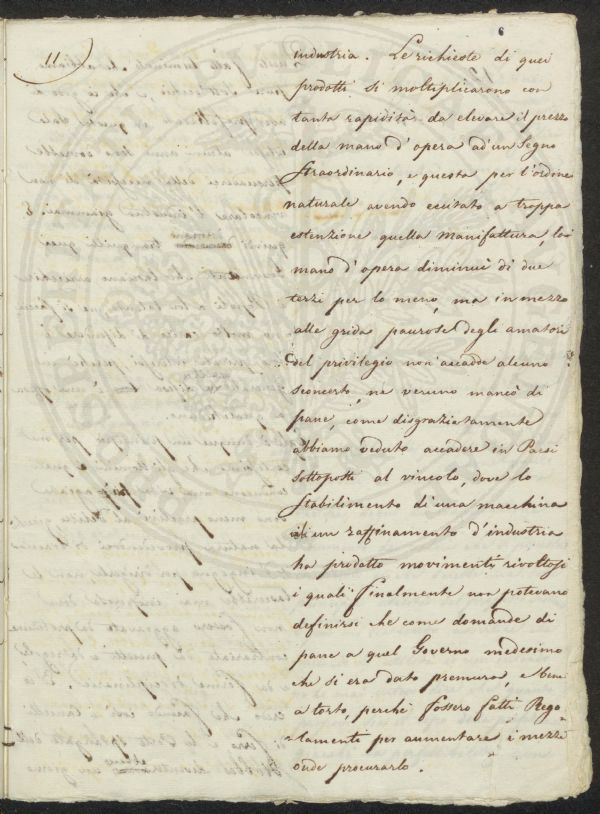 6
11
industria. Le richieste di quei
prodotti si moltiplicarono con
tanta rapidità da elevare il prezzo
della mano d'opera ad un Segno
straordinario, e questa per l'ordine
naturale avendo eccitato a troppa
estenzione quella Manifattura, la
mano d'opera diminuì di due
terzi per lo meno, ma in mezzo
alle grida paurose degli amatori
del privilegio non accadde alcuno
sconcerto, ne veruno mancò di
pane, come disgraziatamente
abbiamo veduto accadere in Paesi
sottoposti al vincolo, dove lo
stabilimento di una macchina
un raffinamento d'industria
ha prodotto movimenti rivoltosi
i quali finalmente non potevano
definirsi che come domande di
pane a quel Governo medesimo
che si era dato premura, e bene
a torto, perchè fossero fatti Rego-
lamenti per aumentare i mezzi
onde procurarlo.